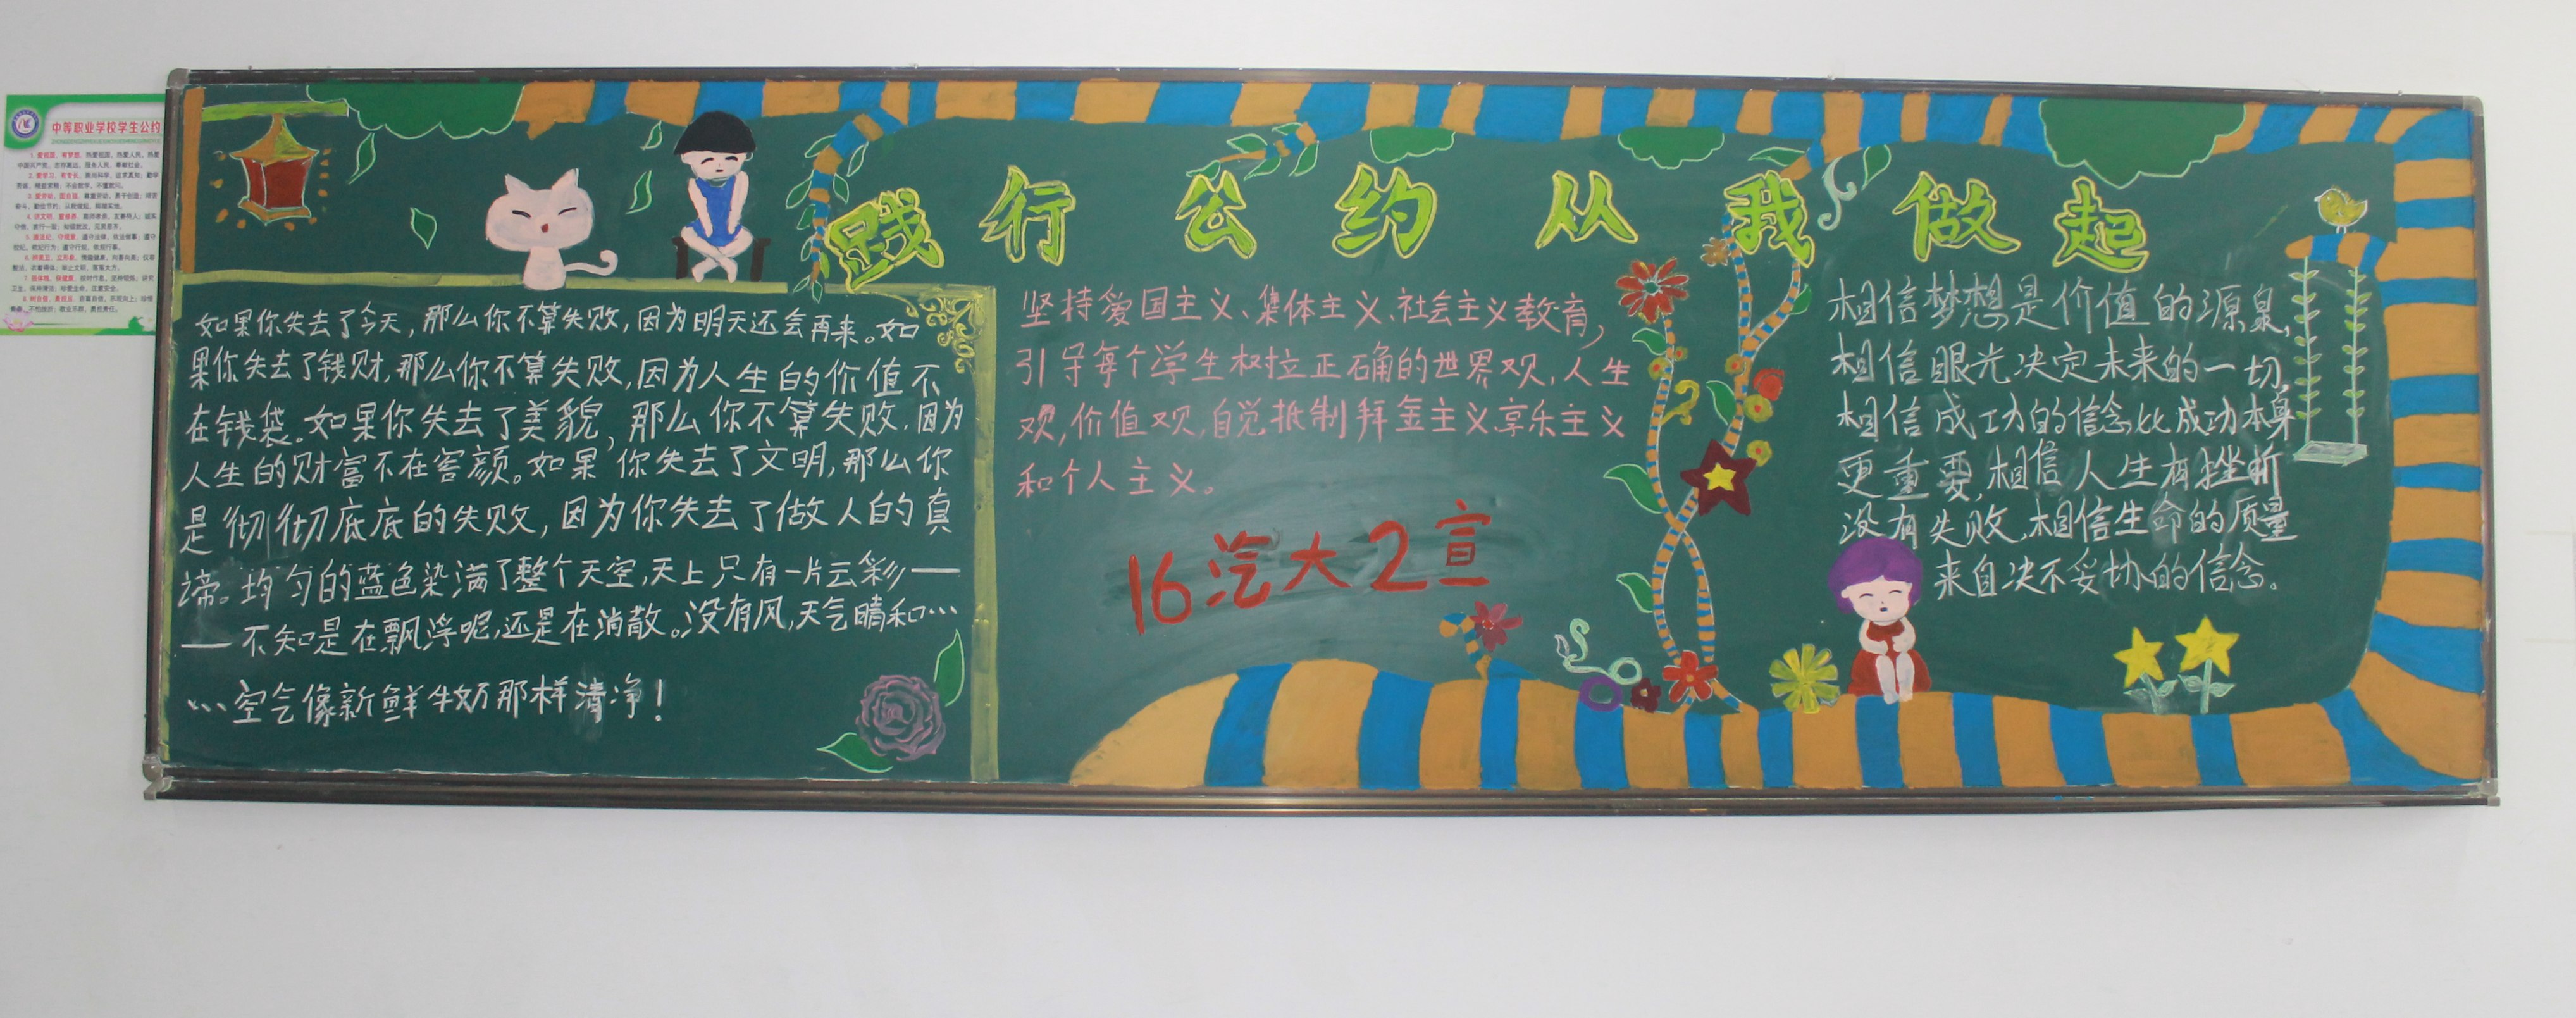 中等职业学校学生公约
践行公约从我做起
如果你失去了今天,那么你不算失败,因为明天还会再来。如
果你失去了钱财,那么你不算失败,因为人生的价值不
在钱袋。如果你失去了美貌,那么你不算失败,因为
人生的财富不在容颜。如果你失去了文明,那么你
是彻彻底底的失败,因为你失去了做人的真
谛。均匀的蓝色染满了整个天空,天上只有一片云彩—
—不知是在飘浮呢,还是在消散。没有风,天气晴和…
…空气像新鲜牛奶那样清净!
坚持爱国主义、集体主义、社会主义教育,
引导每个学生树立正确的世界观,人生
观,价值观,自觉抵制拜金主义享乐主义
和个人主义。
16汽大2宣
相信梦想是价值的源泉,
相信眼光决定未来的一切,
相信成功的信念比成功本身
更重要,相信人生有挫折
没有失败,相信生命的质量
来自决不妥协的信念。